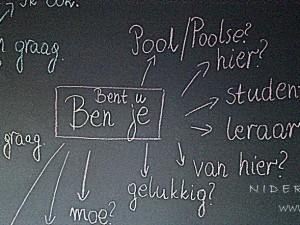 ik
graag.
Pool/Poolse?
hier?
Bent u
Ben je
student
leraar
graag.
van hier?
gelukkig?
moe?
NIDER
www.